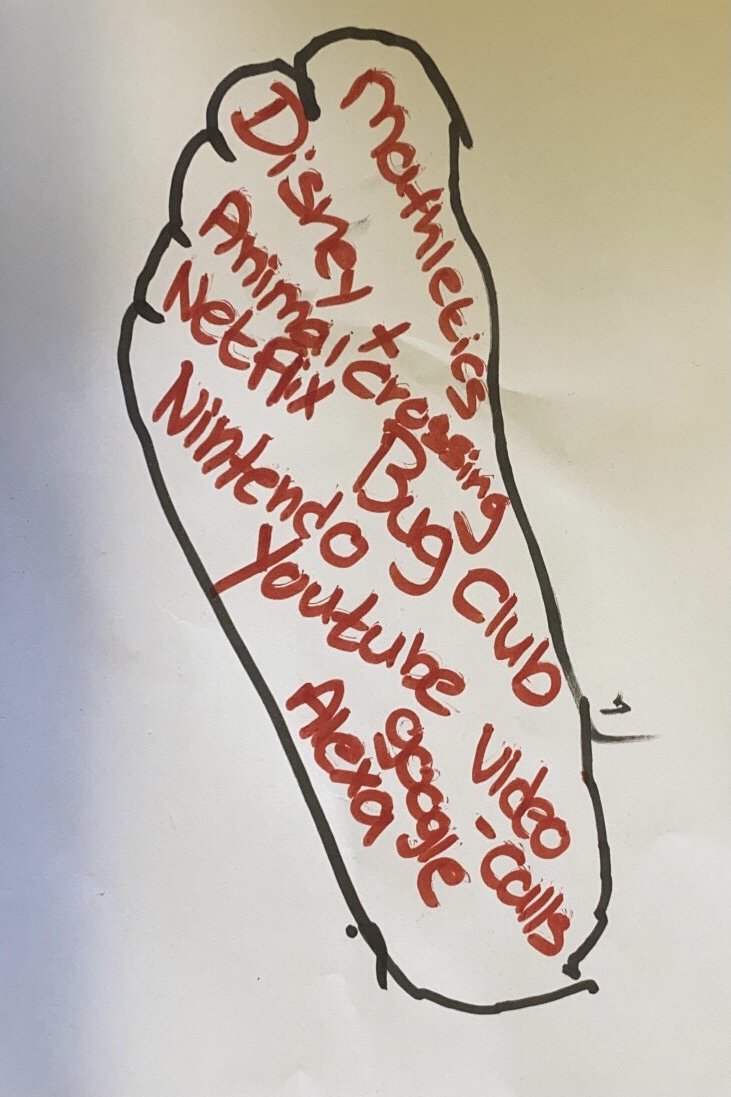 Mathletics
Disney +
Animal crossing
Netflix
Bug Club
Nintendo
Youtube
Video
-Calls
google
Alexa